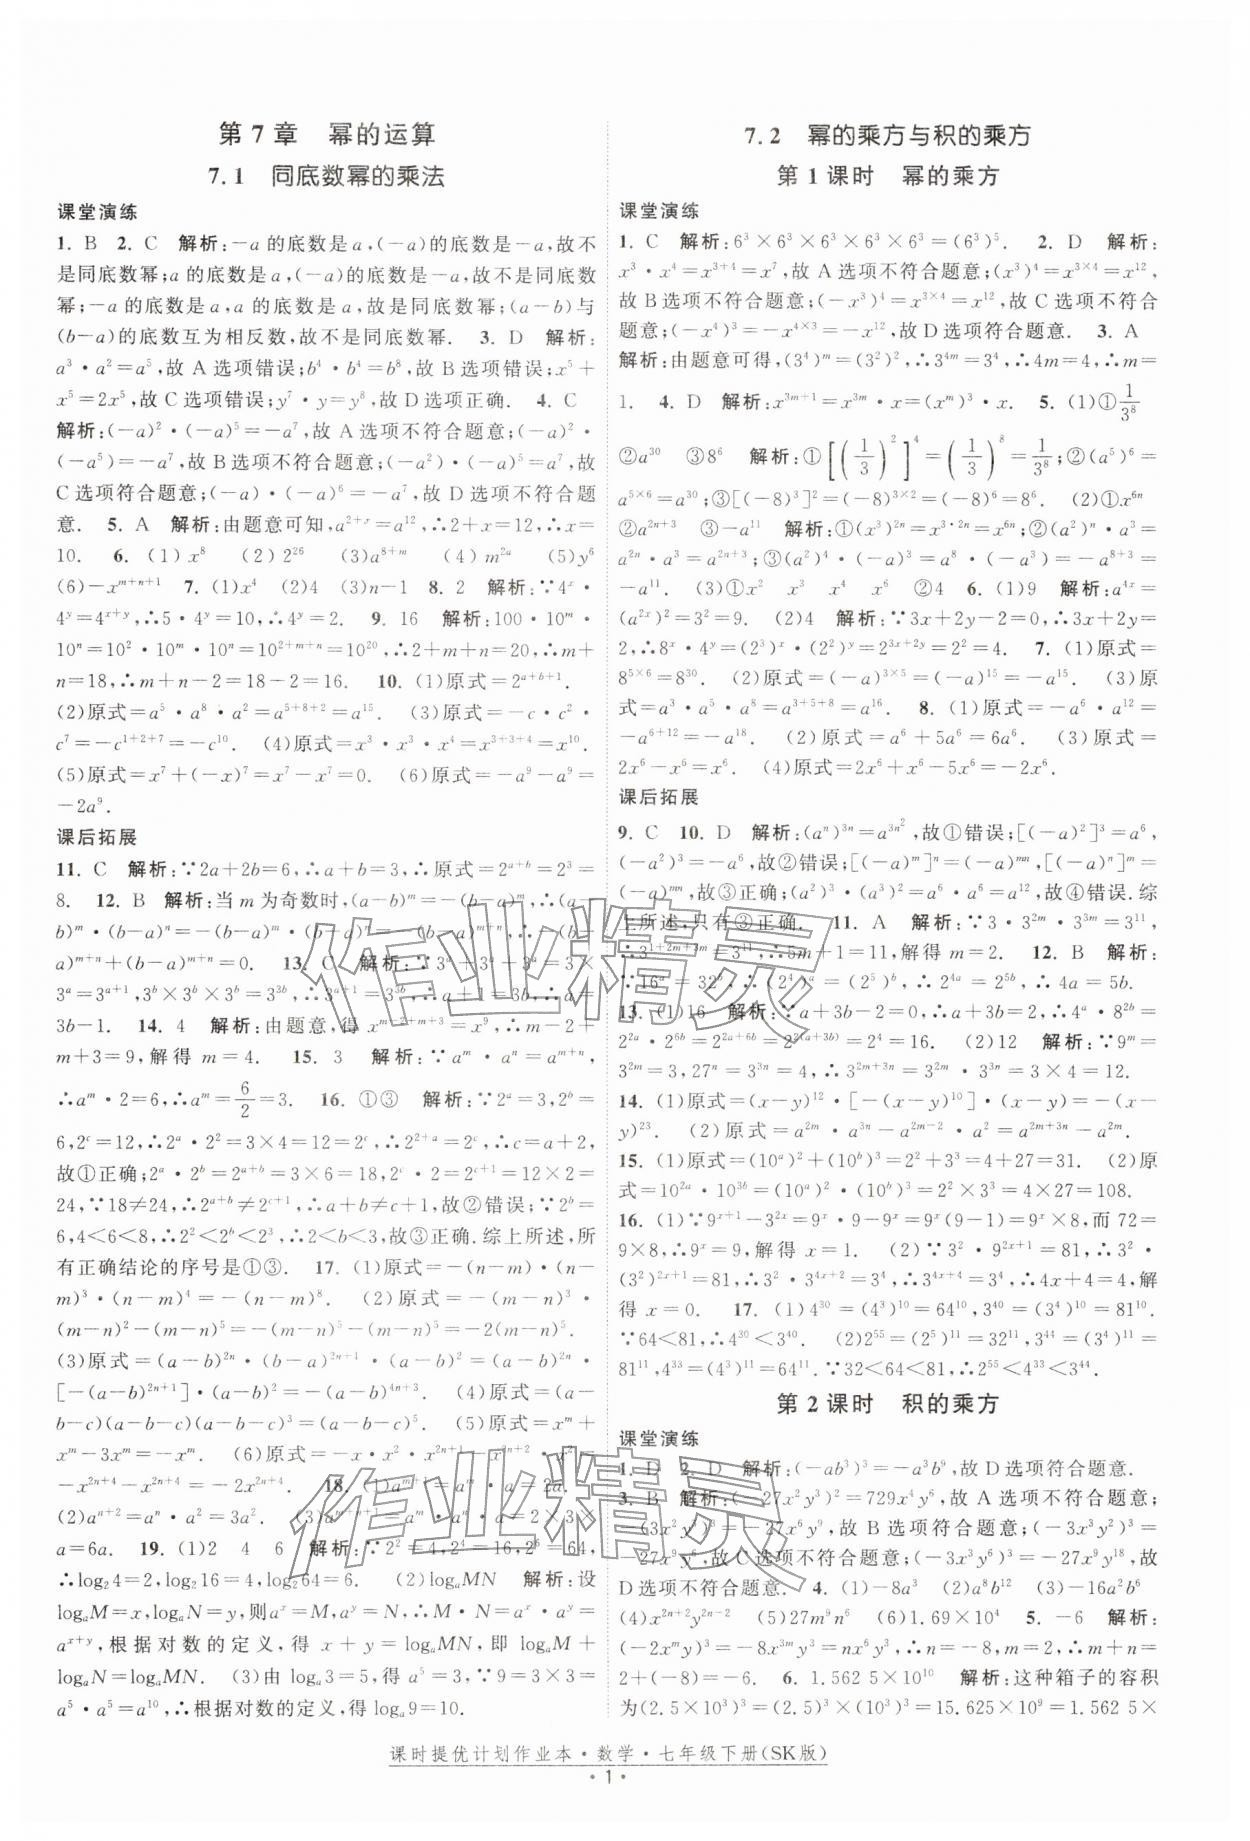 第 7 章　幂的运算
7.1　同底数幂的乘法
课堂演练
1. B　2. C　解析:－a 的底数是 a,(－a)的底数是－a,故不
是同底数幂;a 的底数是 a,(－a)的底数是－a,故不是同底数
幂;－a 的底数是 a,a 的底数是 a,故是同底数幂;(a－b)与
(b－a)的底数互为相反数,故不是同底数幂.　3. D　解析:
a³·a²=a⁵,故 A 选项错误;b⁴·b⁴=b⁸,故 B 选项错误;x⁵+
x⁵=2x⁵,故 C 选项错误;y⁷·y=y⁸,故 D 选项正确.　4. C
解析:(－a)²·(－a)⁵=－a⁷,故 A 选项不符合题意;(－a)²·
(－a⁵)=－a⁷,故 B 选项不符合题意;(－a²)·(－a)⁵=a⁷,故
C 选项符合题意;(－a)·(－a)⁶=－a⁷,故 D 选项不符合题
意.　5. A　解析:由题意可知,a^{2+x}=a¹²,∴2+x=12,∴x=
10.　6. (1)x⁸　(2)2²⁶　(3)a^{8+m}　(4)m^{2a}　(5)y⁶
(6)－x^{m+n+1}　7. (1)x⁴　(2)4　(3)n－1　8. 2　解析:∵4^x·
4^y=4^{x+y},∴5·4^y=10,∴4^y=2.　9. 16　解析:100·10^m·
10^n=10²·10^m·10^n=10^{2+m+n}=10²⁰,∴2+m+n=20,∴m+
n=18,∴m+n－2=18－2=16.　10. (1)原式=2^{a+b+1}.
(2)原式=a⁵·a⁸·a²=a^{5+8+2}=a¹⁵.　(3)原式=－c·c²·
c⁷=－c^{1+2+7}=－c¹⁰.　(4)原式=x³·x³·x⁴=x^{3+3+4}=x¹⁰.
(5)原式=x⁷+(－x)⁷=x⁷－x⁷=0.　(6)原式=－a⁹－a⁹=
－2a⁹.
课后拓展
11. C　解析:∵2a+2b=6,∴a+b=3,∴原式=2^{a+b}=2³=
8.　12. B　解析:当 m 为奇数时,(a－b)^m=－(b－a)^m,∴(a－
b)^m·(b－a)^n=－(b－a)^m·(b－a)^n=－(b－a)^{m+n},∴(b－
a)^{m+n}+(b－a)^{m+n}=0.　13. C　解析:∵3^a+3^a+3^a=3×
3^a=3^{a+1},3^b×3^b×3^b=3^{3b},∴3^{a+1}=3^{3b},∴a+1=3b,∴a=
3b－1.　14. 4　解析:由题意,得 x^{m－2+m+3}=x⁹,∴m－2+
m+3=9,解得 m=4.　15. 3　解析:∵a^m·a^n=a^{m+n},
∴a^m·2=6,∴a^m=6/2=3.　16. ①③　解析:∵2^a=3,2^b=
6,2^c=12,∴2^a·2²=3×4=12=2^c,∴2^{2+a}=2^c,∴c=a+2,
故①正确;2^a·2^b=2^{a+b}=3×6=18,2^c·2=2^{c+1}=12×2=
24,∵18≠24,∴2^{a+b}≠2^{c+1},∴a+b≠c+1,故②错误;∵2^b=
6,4<6<8,∴2²<2^b<2³,∴2<b<3,故③正确.综上所述,所
有正确结论的序号是①③.　17. (1)原式=－(n－m)·(n－
m)³·(n－m)⁴=－(n－m)⁸.　(2)原式=(m－n)³·
(m－n)²－(m－n)⁵=－(m－n)⁵－(m－n)⁵=－2(m－n)⁵.
(3)原式=(a－b)^{2n}·(b－a)^{2n+1}·(a－b)²=(a－b)^{2n+2}·
[－(a－b)^{2n+1}]=－(a－b)^{4n+3}.　(4)原式=(a－
b－c)(a－b－c)²(a－b－c)³=(a－b－c)⁶.　(5)原式=x^m+
x^m－3x^m=－x^m.　(6)原式=－x·x²·x^{2n+1}－x^{2n+4}=
－x^{2n+4}－x^{2n+4}=－2x^{2n+4}.　18. (1)a^{m+1}=a^m·a=2a.
(2)a^{n+2}=a^n·a²=3a².　(3)a^{m+n+1}=a^m·a^n·a=2×3×
a=6a.　19. (1)2　4　6　解析:∵2²=4,2⁴=16,2⁶=64,
∴log₂4=2,log₂16=4,log₂64=6.　(2)logₐMN　解析:设
logₐM=x,logₐN=y,则a^x=M,a^y=N,∴M·N=a^x·a^y=
a^{x+y},根据对数的定义,得 x+y=logₐMN,即 logₐM+
logₐN=logₐMN.　(3)由 logₐ3=5,得 a⁵=3,∵9=3×3=
a⁵·a⁵=a¹⁰,∴根据对数的定义,得 logₐ9=10.
7.2　幂的乘方与积的乘方
第 1 课时　幂的乘方
课堂演练
1. C　解析:6³×6³×6³×6³×6³=(6³)⁵.　2. D　解析:
x³·x⁴=x^{3+4}=x⁷,故 A 选项不符合题意;(x³)⁴=x^{3×4}=x¹²,
故 B 选项不符合题意;(－x³)⁴=x^{3×4}=x¹²,故 C 选项不符合
题意;(－x⁴)³=－x^{4×3}=－x¹²,故 D 选项符合题意.　3. A
解析:由题意可得,(3⁴)^m=(3²)²,∴3^{4m}=3⁴,∴4m=4,∴m=
1.　4. D　解析:x^{3m+1}=x^{3m}·x=(x^m)³·x.　5. (1)①1/3⁸
②a³⁰　③8⁶　解析:①[(1/3)²]⁴=(1/3)⁸=1/3⁸;②(a⁵)⁶=
a^{5×6}=a³⁰;③[(－8)³]²=(－8)^{3×2}=(－8)⁶=8⁶.　(2)①x^{6n}
②a^{2n+3}　③－a¹¹　解析:①(x³)^{2n}=x^{3·2n}=x^{6n};②(a²)^n·a³=
a^{2n}·a³=a^{2n+3};③(a²)⁴·(－a)³=a⁸·(－a³)=－a^{8+3}=
－a¹¹.　(3)①x²　x³　x⁴　x⁶　②4　6. (1)9　解析:a^{4x}=
(a^{2x})²=3²=9.　(2)4　解析:∵3x+2y－2=0,∴3x+2y=
2,∴8^x·4^y=(2³)^x·(2²)^y=2^{3x+2y}=2²=4.　7. (1)原式=
8^{5×6}=8³⁰.　(2)原式=(－a)^{3×5}=(－a)¹⁵=－a¹⁵.　(3)原
式=a³·a⁵·a⁸=a^{3+5+8}=a¹⁶.　8. (1)原式=－a⁶·a¹²=
－a^{6+12}=－a¹⁸.　(2)原式=a⁶+5a⁶=6a⁶.　(3)原式=
2x⁶－x⁶=x⁶.　(4)原式=2x⁶+x⁶－5x⁶=－2x⁶.
课后拓展
9. C　10. D　解析:(a^n)^{3n}=a^{3n²},故①错误;[(－a)²]³=a⁶,
(－a²)³=－a⁶,故②错误;[(－a)^m]^n=(－a)^{mn},[(－a)^n]^m=
(－a)^{mn},故③正确;(a²)³·(a³)²=a⁶·a⁶=a¹²,故④错误.综
上所述,只有③正确.　11. A　解析:∵3·3^{2m}·3^{3m}=3¹¹,
∴3^{1+2m+3m}=3¹¹,∴5m+1=11,解得 m=2.　12. B　解析:
∵16^a=32^b,∴(2⁴)^a=(2⁵)^b,∴2^{4a}=2^{5b},∴4a=5b.
13. (1)16　解析:∵a+3b－2=0,∴a+3b=2,∴4^a·8^{2b}=
2^{2a}·2^{6b}=2^{2a+6b}=2^{2(a+3b)}=2⁴=16.　(2)12　解析:∵9^m=
3^{2m}=3,27^n=3^{3n}=4,∴3^{2m+3n}=3^{2m}·3^{3n}=3×4=12.
14. (1)原式=(x－y)¹²·[－(x－y)¹⁰]·(x－y)=－(x－
y)²³.　(2)原式=a^{2m}·a^{3n}－a^{2m－2}·a²=a^{2m+3n}－a^{2m}.
15. (1)原式=(10^a)²+(10^b)³=2²+3³=4+27=31.　(2)原
式=10^{2a}·10^{3b}=(10^a)²·(10^b)³=2²×3³=4×27=108.
16. (1)∵9^{x+1}－3^{2x}=9^x·9－9^x=9^x(9－1)=9^x×8,而 72=
9×8,∴9^x=9,解得 x=1.　(2)∵3²·9^{2x+1}=81,∴3²·
(3²)^{2x+1}=81,∴3²·3^{4x+2}=3⁴,∴3^{4x+4}=3⁴,∴4x+4=4,解
得 x=0.　17. (1)4³⁰=(4³)¹⁰=64¹⁰,3⁴⁰=(3⁴)¹⁰=81¹⁰.
∵64<81,∴4³⁰<3⁴⁰.　(2)2⁵⁵=(2⁵)¹¹=32¹¹,3⁴⁴=(3⁴)¹¹=
81¹¹,4³³=(4³)¹¹=64¹¹.∵32<64<81,∴2⁵⁵<4³³<3⁴⁴.
第 2 课时　积的乘方
课堂演练
1. D　2. D　解析:(－ab³)³=－a³b⁹,故 D 选项符合题意.
3. B　解析:(－27x²y³)²=729x⁴y⁶,故 A 选项不符合题意;
－(3x²y³)³=－27x⁶y⁹,故 B 选项符合题意;(－3x³y²)³=
－27x⁹y⁶,故 C 选项不符合题意;(－3x³y⁶)³=－27x⁹y¹⁸,故
D 选项不符合题意.　4. (1)－8a³　(2)a⁸b¹²　(3)－16a²b⁶
(4)x^{2n+2}y^{2n－2}　(5)27m⁹n⁶　(6)1.69×10⁴　5. －6　解析:
(－2x^m y)³=－8x^{3m}y³=nx⁶y³,∴n=－8,m=2,∴m+n=
2+(－8)=－6.　6. 1.562 5×10¹⁰　解析:这种箱子的容积
为(2.5×10³)³=(2.5)³×(10³)³=15.625×10⁹=1.562 5×
课时提优计划作业本·数学·七年级下册(SK版)
·1·
作业精灵
作业精灵